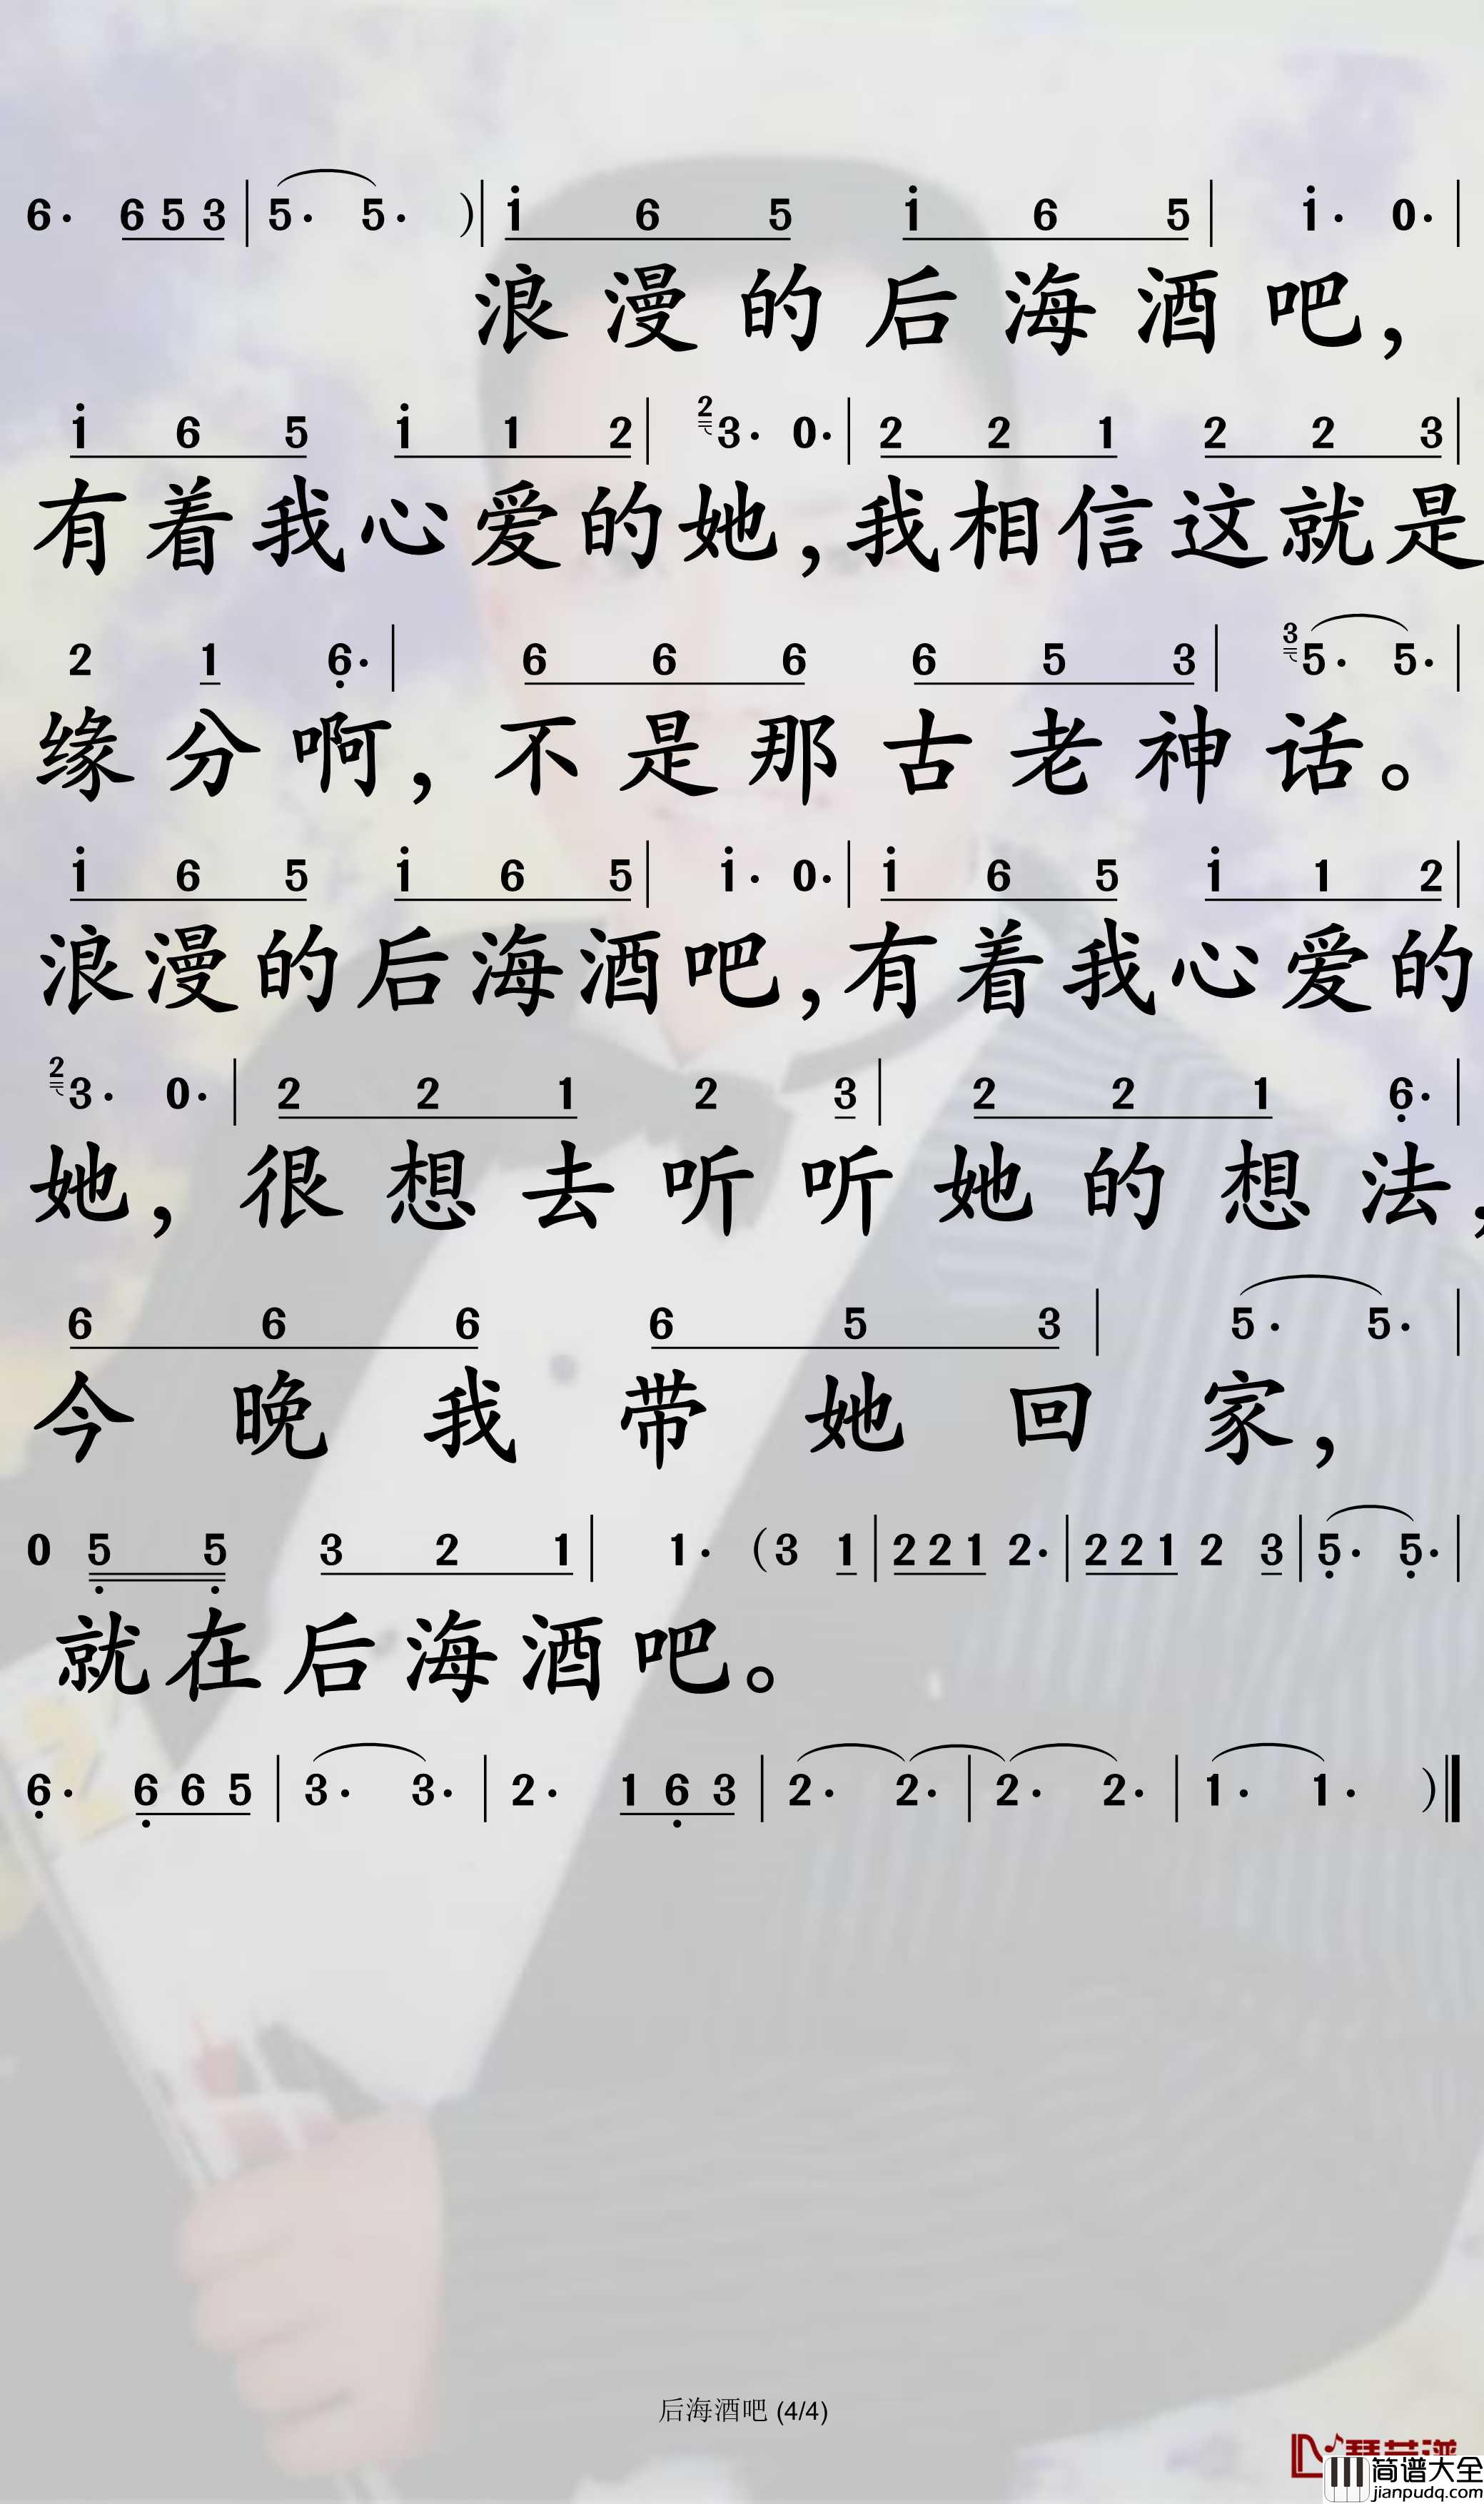 6· 6 5 3 | 5· 5· )| i 6 5 i 6 5 | i· 0· |
浪漫的后海酒吧，
i 6 5 i 1 2 | 2 3· 0· | 2 2 1 2 2 3 |
有着我心爱的她，我相信这就是
2 1 6̣· | 6 6 6 6 5 3 | 3 5· 5· |
缘分啊，不是那古老神话。
i 6 5 i 6 5 | i· 0· | i 6 5 i 1 2 |
浪漫的后海酒吧，有着我心爱的
2 3· 0· | 2 2 1 2 3 | 2 2 1 6̣· |
她，很想去听听她的想法，
6 6 6 6 5 3 | 5· 5· |
今晚我带她回家，
0 5̣ 5̣ 3 2 1 | 1· (3 1 | 2 2 1 2· | 2 2 1 2 3 | 5̣· 5̣· |
就在后海酒吧。
6̣· 6̣ 6 5 | 3· 3· | 2· 1 6̣ 3 | 2· 2· | 2· 2· | 1· 1· )‖
后海酒吧 (4/4)
简谱大全
jianpudq.com